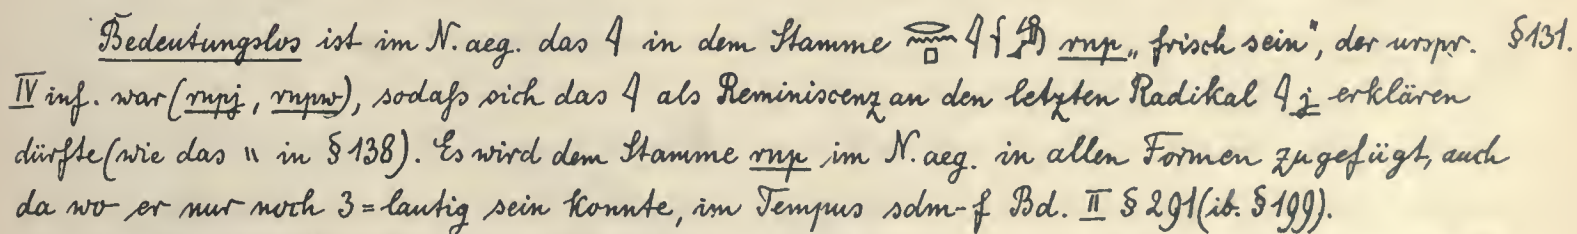 Bedeutungslos ist im N. aeg. das 𓇋 in dem Stamme 𓂋𓈖𓊪𓇋𓆳 rnp „frisch sein“, der urspr. §131.
IV inf. war (rnpj, rnpw), sodaſs sich das 𓇋 als Reminiscenz an den letzten Radikal 𓇋 j erklären
dürfte (wie das 𓏭 in §138). Es wird dem Stamme rnp im N. aeg. in allen Formen zugefügt, auch
da wo er nur noch 3=lautig sein konnte, im Tempus sdm-f Bd. II §291 (ib. §199).